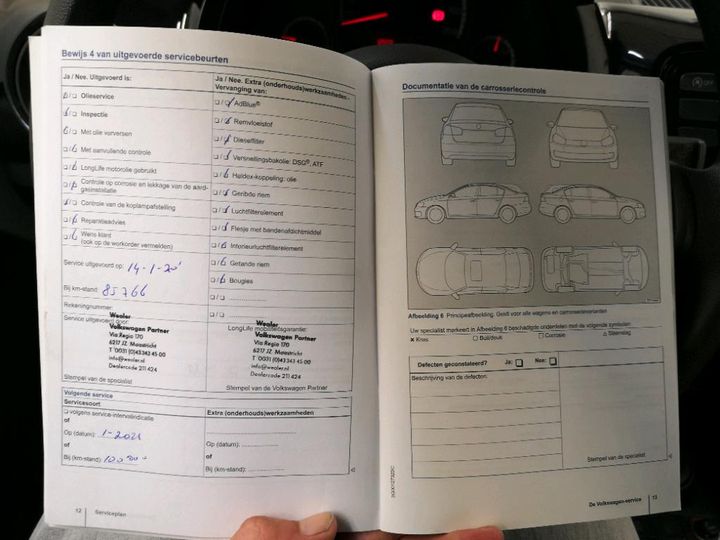 Bewijs 4 van uitgevoerde servicebeurten
Ja / Nee. Uitgevoerd is:
Olieservice
Inspectie
Met olie verversen
Met aanvullende controle
LongLife motorolie gebruikt
Controle op corrosie en lekkage van de aard-
gasinstallatie
Controle van de koplampafstelling
Reparatieadvies
Wens klant
(ook op de workorder vermelden)
Service uitgevoerd op: 14-1-20
Bij km-stand: 85766
Rekeningnummer:
Service uitgevoerd door:
Wealer
Volkswagen Partner
Via Regia 170
6217 JZ Maastricht
T 0031 (0)43 343 45 00
info@wealer.nl
Dealercode 211 424
Stempel van de specialist
Ja / Nee. Extra (onderhouds)werkzaamheden -
Vervanging van:
AdBlue®
Remvloeistof
Dieselfilter
Versnellingsbakolie: DSG®, ATF
Haldex-koppeling: olie
Geribde riem
Luchtfilterelement
Flesje met bandenafdichtmiddel
Interieurluchtfilterelement
Getande riem
Bougies
LongLife mobiliteitsgarantie:
Wealer
Volkswagen Partner
Via Regia 170
6217 JZ Maastricht
T 0031 (0)43 343 45 00
info@wealer.nl
Dealercode 211 424
Stempel van de Volkswagen Partner
Volgende service
Servicesoort
volgens service-intervalindicatie
of
Op (datum): 1-2021
of
Bij (km-stand): 100 000
Extra (onderhouds)werkzaamheden
Op (datum):
of
Bij (km-stand):
12 Serviceplan
Documentatie van de carrosseriecontrole
Afbeelding 6 Principeafbeelding. Geldt voor alle wagens en carrosserievarianten
Uw specialist markeert in Afbeelding 6 beschadigde onderdelen met de volgende symbolen:
x Kras
□ Buil/deuk
□ Corrosie
△ Steenslag
Defecten geconstateerd? Ja: Nee:
Beschrijving van de defecten:
Stempel van de specialist
De Volkswagen-service 13